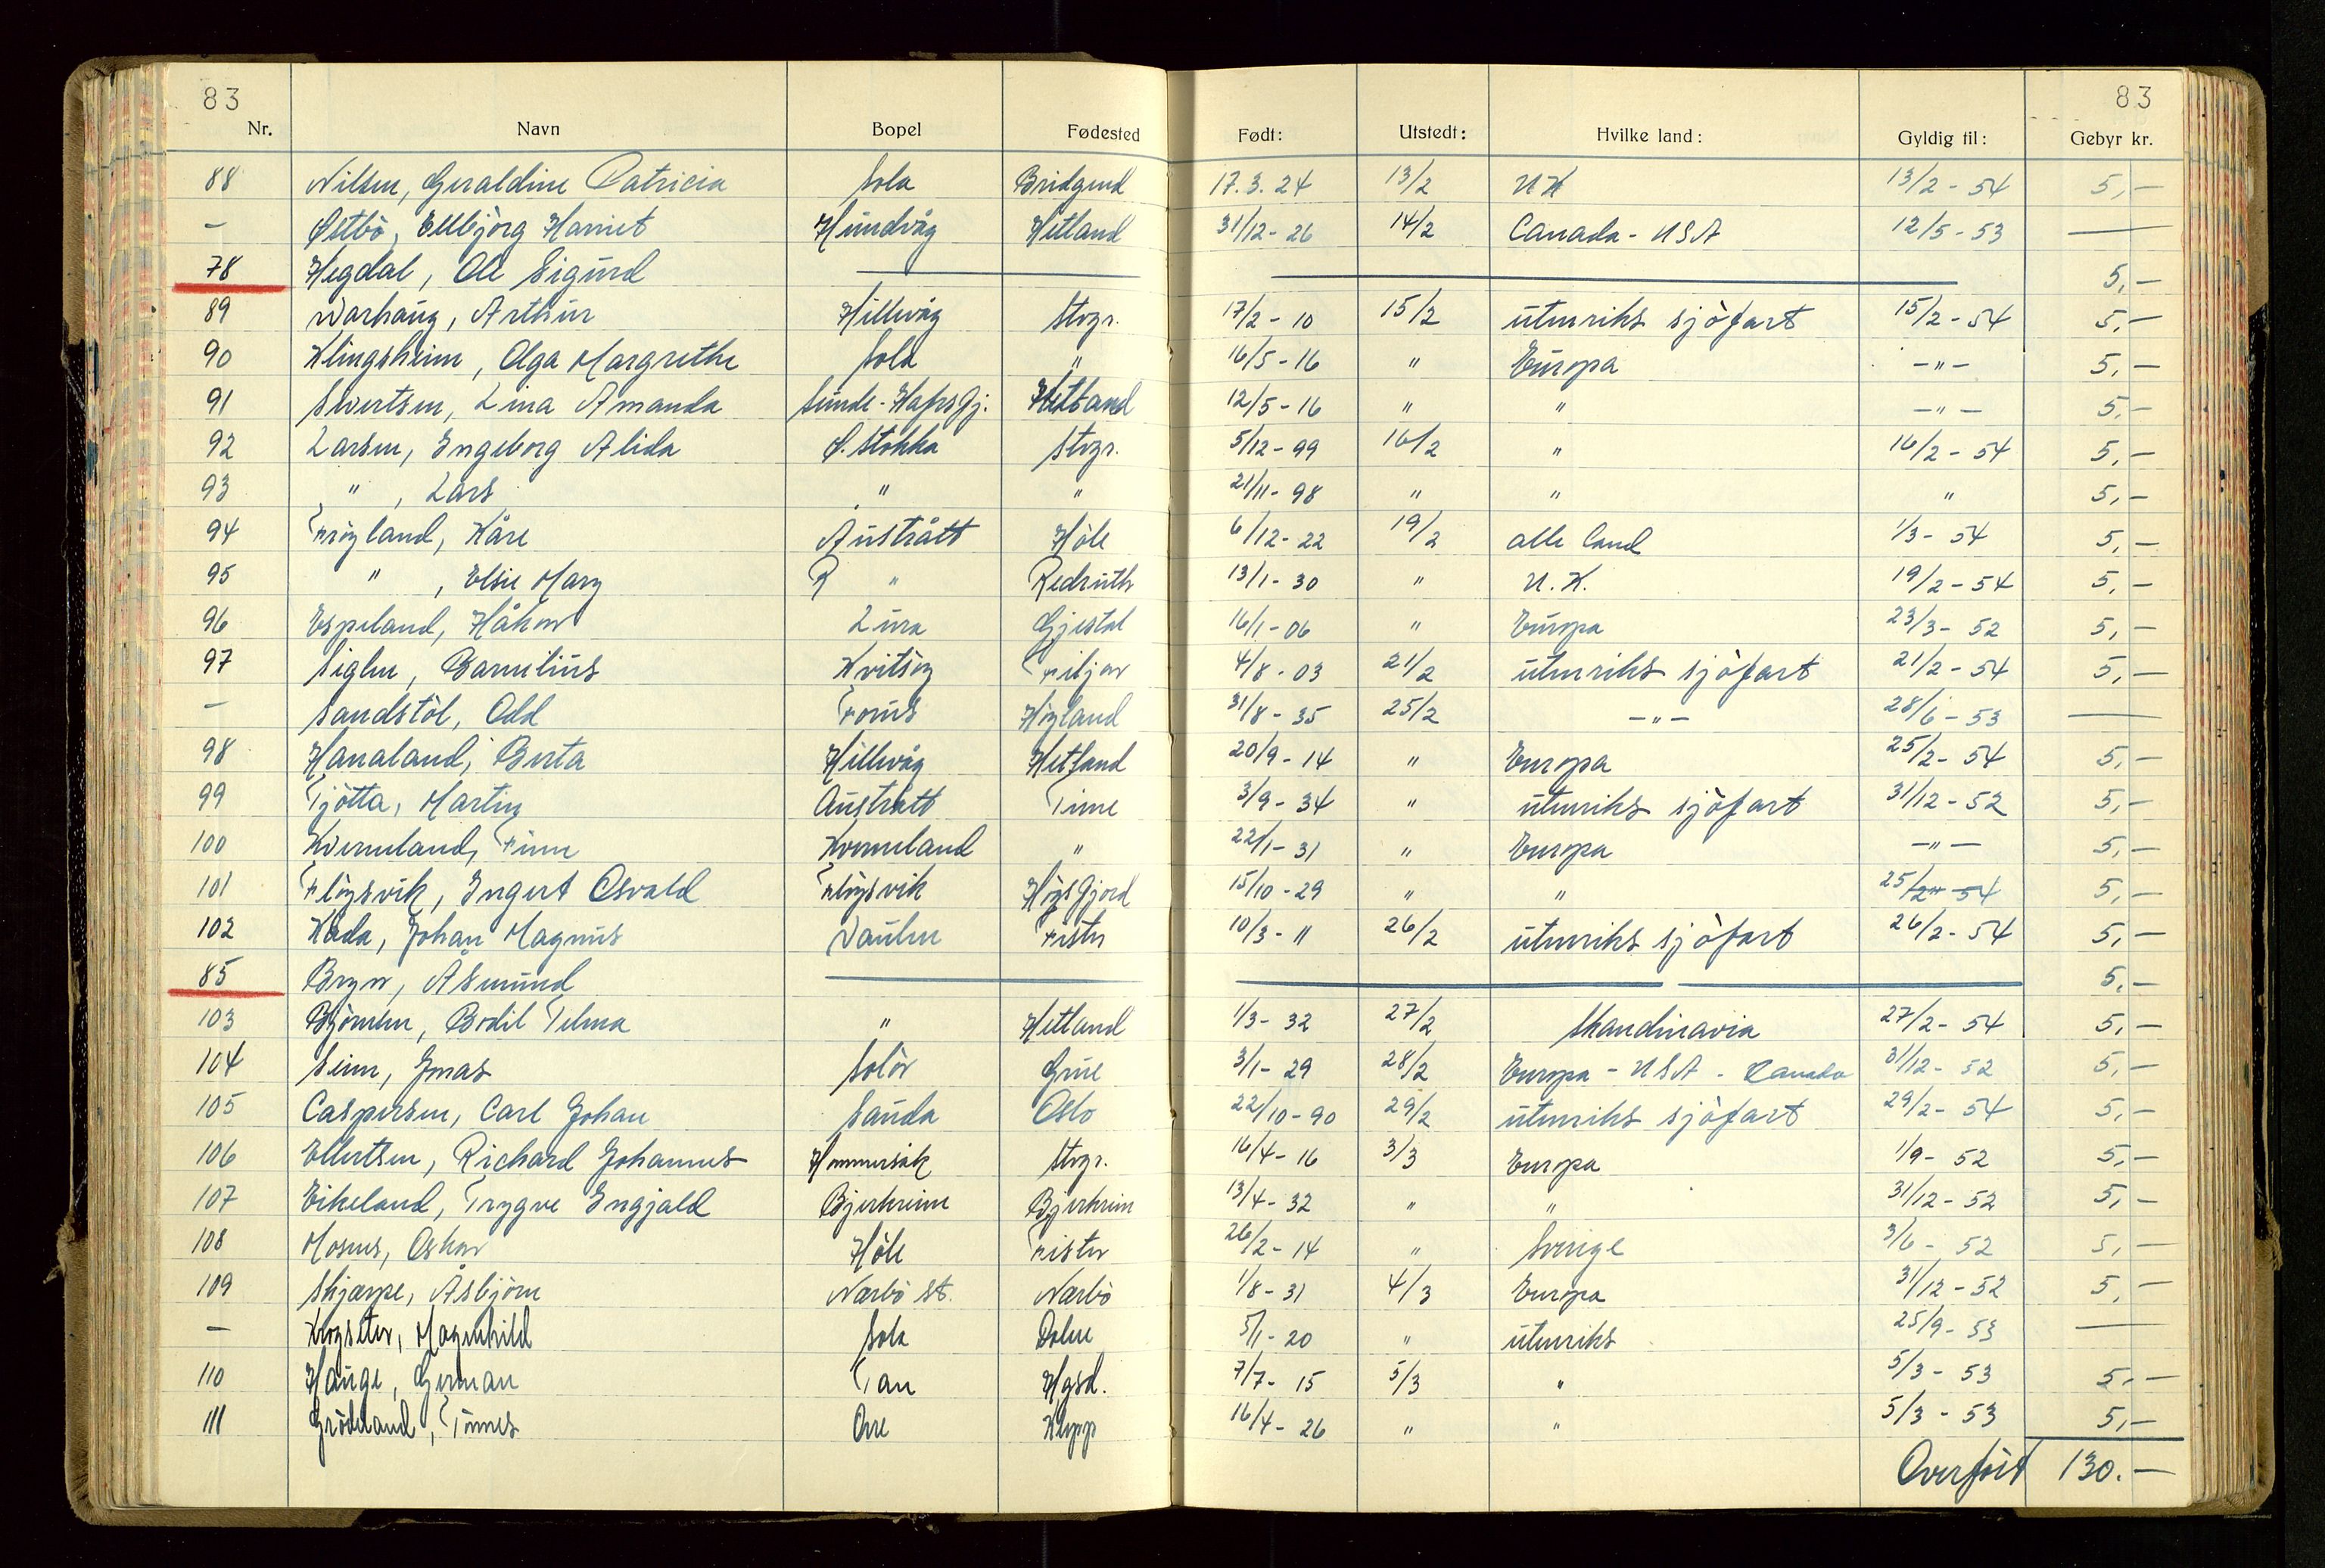 83 83
Nr. Navn Bopel Fødested Født: Utstedt: Hvilke land: Gyldig til: Gebyr kr.
88 Nilsen, Geraldine Patricia Sola Bridgend 17.3.24 13/2 UK 13/2-54 5,-
- Østbö, Ellbjörg Harriet Hundvåg Hetland 31/12-26 14/2 Canada - USA 12/5-53 —
78 Hegdal, Ole Sigurd — — 5,-
89 Varhaug, Arthur Hillevåg Stvgr. 17/2-10 15/2 utenriks sjöfart 15/2-54 5,-
90 Klingsheim, Olga Margrethe Sola " 16/5-16 " Europa -"- 5,-
91 Sivertsen, Lina Amanda Sunde-Hafrsfj. Hetland 12/5-16 " " -"- 5,-
92 Larsen, Engeborg Alida Ø. Stokka Stvgr. 5/12-99 16/2 " 16/2-54 5,-
93 " , Lars " " 21/11-98 " " " 5,-
94 Fröyland, Kåre Austrått Höle 6/12-22 19/2 alle land 1/3-54 5,-
95 " , Elsie Mary " Redruth 13/1-30 " U.K. 19/2-54 5,-
96 Espeland, Håkon Lura Gjestal 16/1-06 " Europa 23/3-52 5,-
97 Siglen, Barnelius Kvitsöy 4/8-03 21/2 utenriks sjöfart 21/2-54 5,-
- Sandstöl, Odd Forus Höyland 31/8-35 25/2 -"- 28/6-53 —
98 Hanaland, Berta Hillevåg Hetland 20/9-14 " Europa 25/2-54 5,-
99 Tjötta, Martin Austrått Time 3/9-34 " utenriks sjöfart 31/12-52 5,-
100 Kverneland, Finn Kverneland " 22/1-31 " Europa -"- 5,-
101 Flöysvik, Ingert Osvald Flöysvik Högsfjord 15/10-29 " " 25/2-54 5,-
102 Kada, Johan Magnus Vaulen Fister 10/3-11 26/2 utenriks sjöfart 26/2-54 5,-
85 Bryn, Åsmund — — 5,-
103 Björnsen, Bodil Telma " Hetland 1/3-32 27/2 Skandinavia 27/2-54 5,-
104 Seim, Jonas Solör Grue 3/1-29 28/2 Europa - USA - Canada 31/12-52 5,-
105 Caspersen, Carl Johan Sauda Oslo 22/10-90 29/2 utenriks sjöfart 29/2-54 5,-
106 Ellertsen, Richard Johannes Hommersåk Stvgr. 16/4-16 3/3 Europa 1/9-52 5,-
107 Eikeland, Trygve Engjald Bjerkreim Bjerkreim 13/4-32 " " 31/12-52 5,-
108 Mosnes, Oskar Höle Fister 26/2-14 " Sverige 3/6-52 5,-
109 Skjærpe, Åsbjörn Nærbö St. Nærbö 1/8-31 4/3 Europa 31/12-52 5,-
- Magnhild Sola 5/1-20 " utenriks 25/9-53 —
110 Hauge, German Tau Hgsd. 7/7-15 5/3 " 5/3-53 5,-
111 Grödeland, Tönnes Orre Klepp 16/4-26 " " 5/3-53 5,-
Overfört 130.-